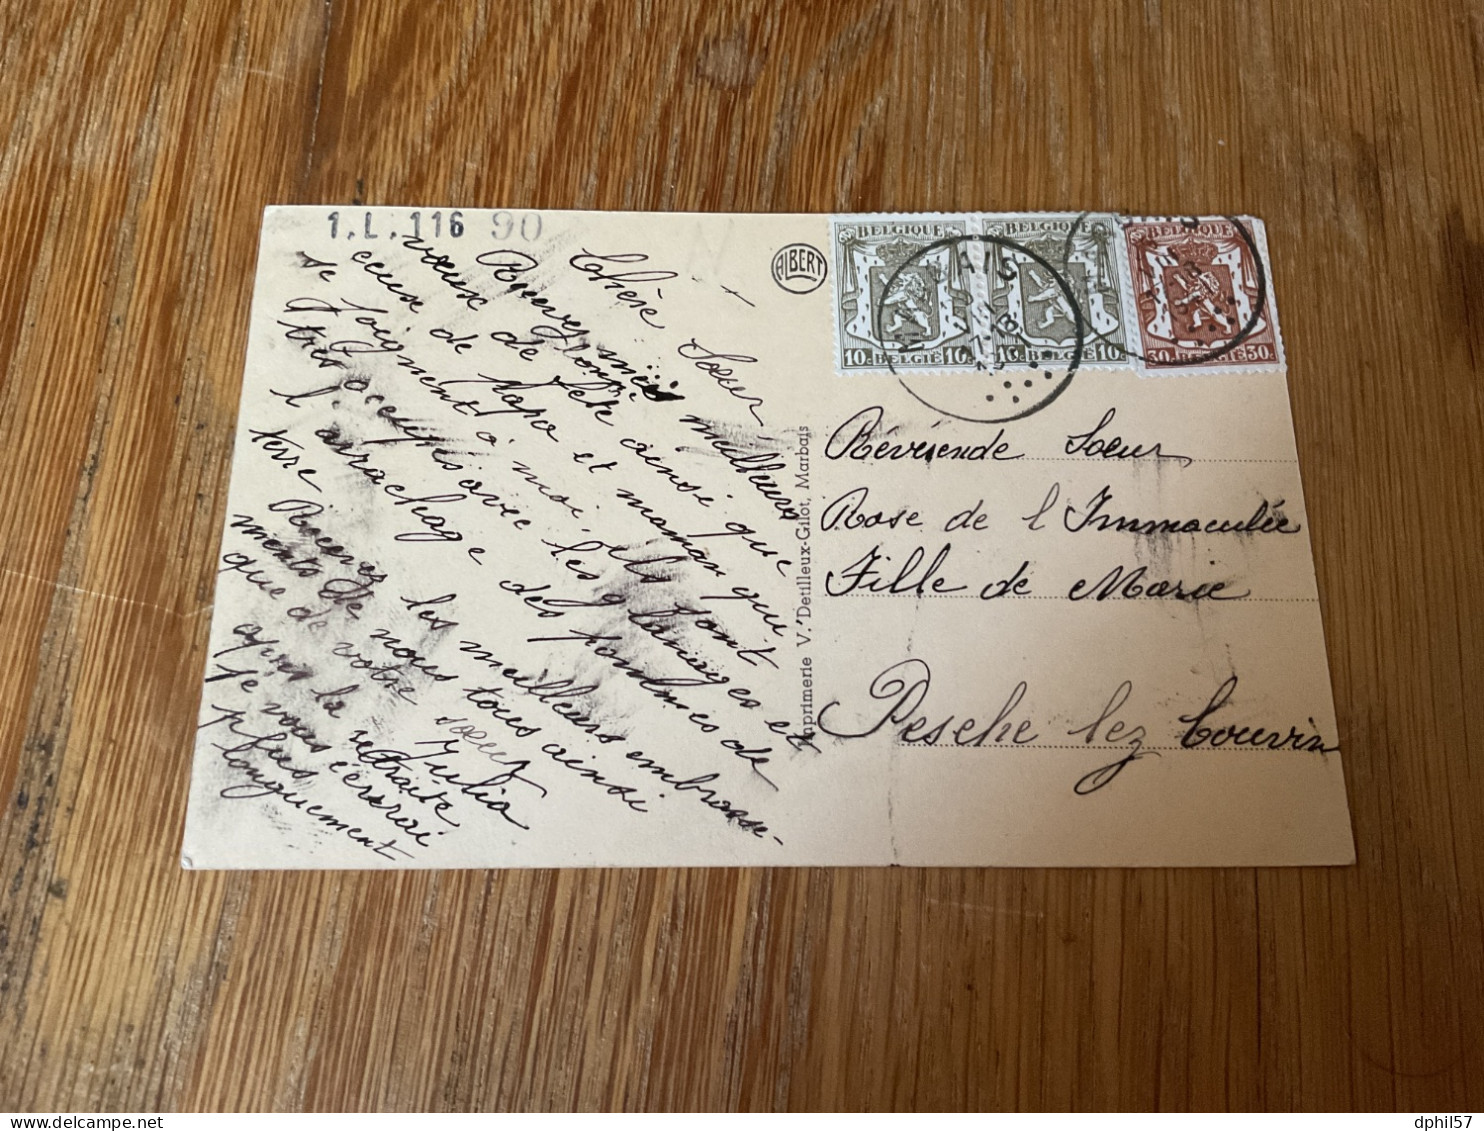 1.L.116 90
Chère Sœur
Recevez mes meilleurs
vœux de bonne fête ainsi que
ceux de Papa et maman qui
se joignent à moi, ils sont
très occupés avec les glanages et
l'arrachage des pommes de
terre
Recevez les meilleurs embrasse-
ments de nous tous ainsi
que de votre sœur Julia
après la retraite
je vous écrirai
plus
longuement
ALBERT
Imprimerie V. Detilleux-Gilot, Marbais
BELGIQUE BELGIQUE BELGIQUE
10c BELGIË 10c 10c BELGIË 10c 30c BELGIË 30c
Révérende Soeur
Rose de l Immaculée
Fille de Marie
Pesche lez Couvin
dphil57